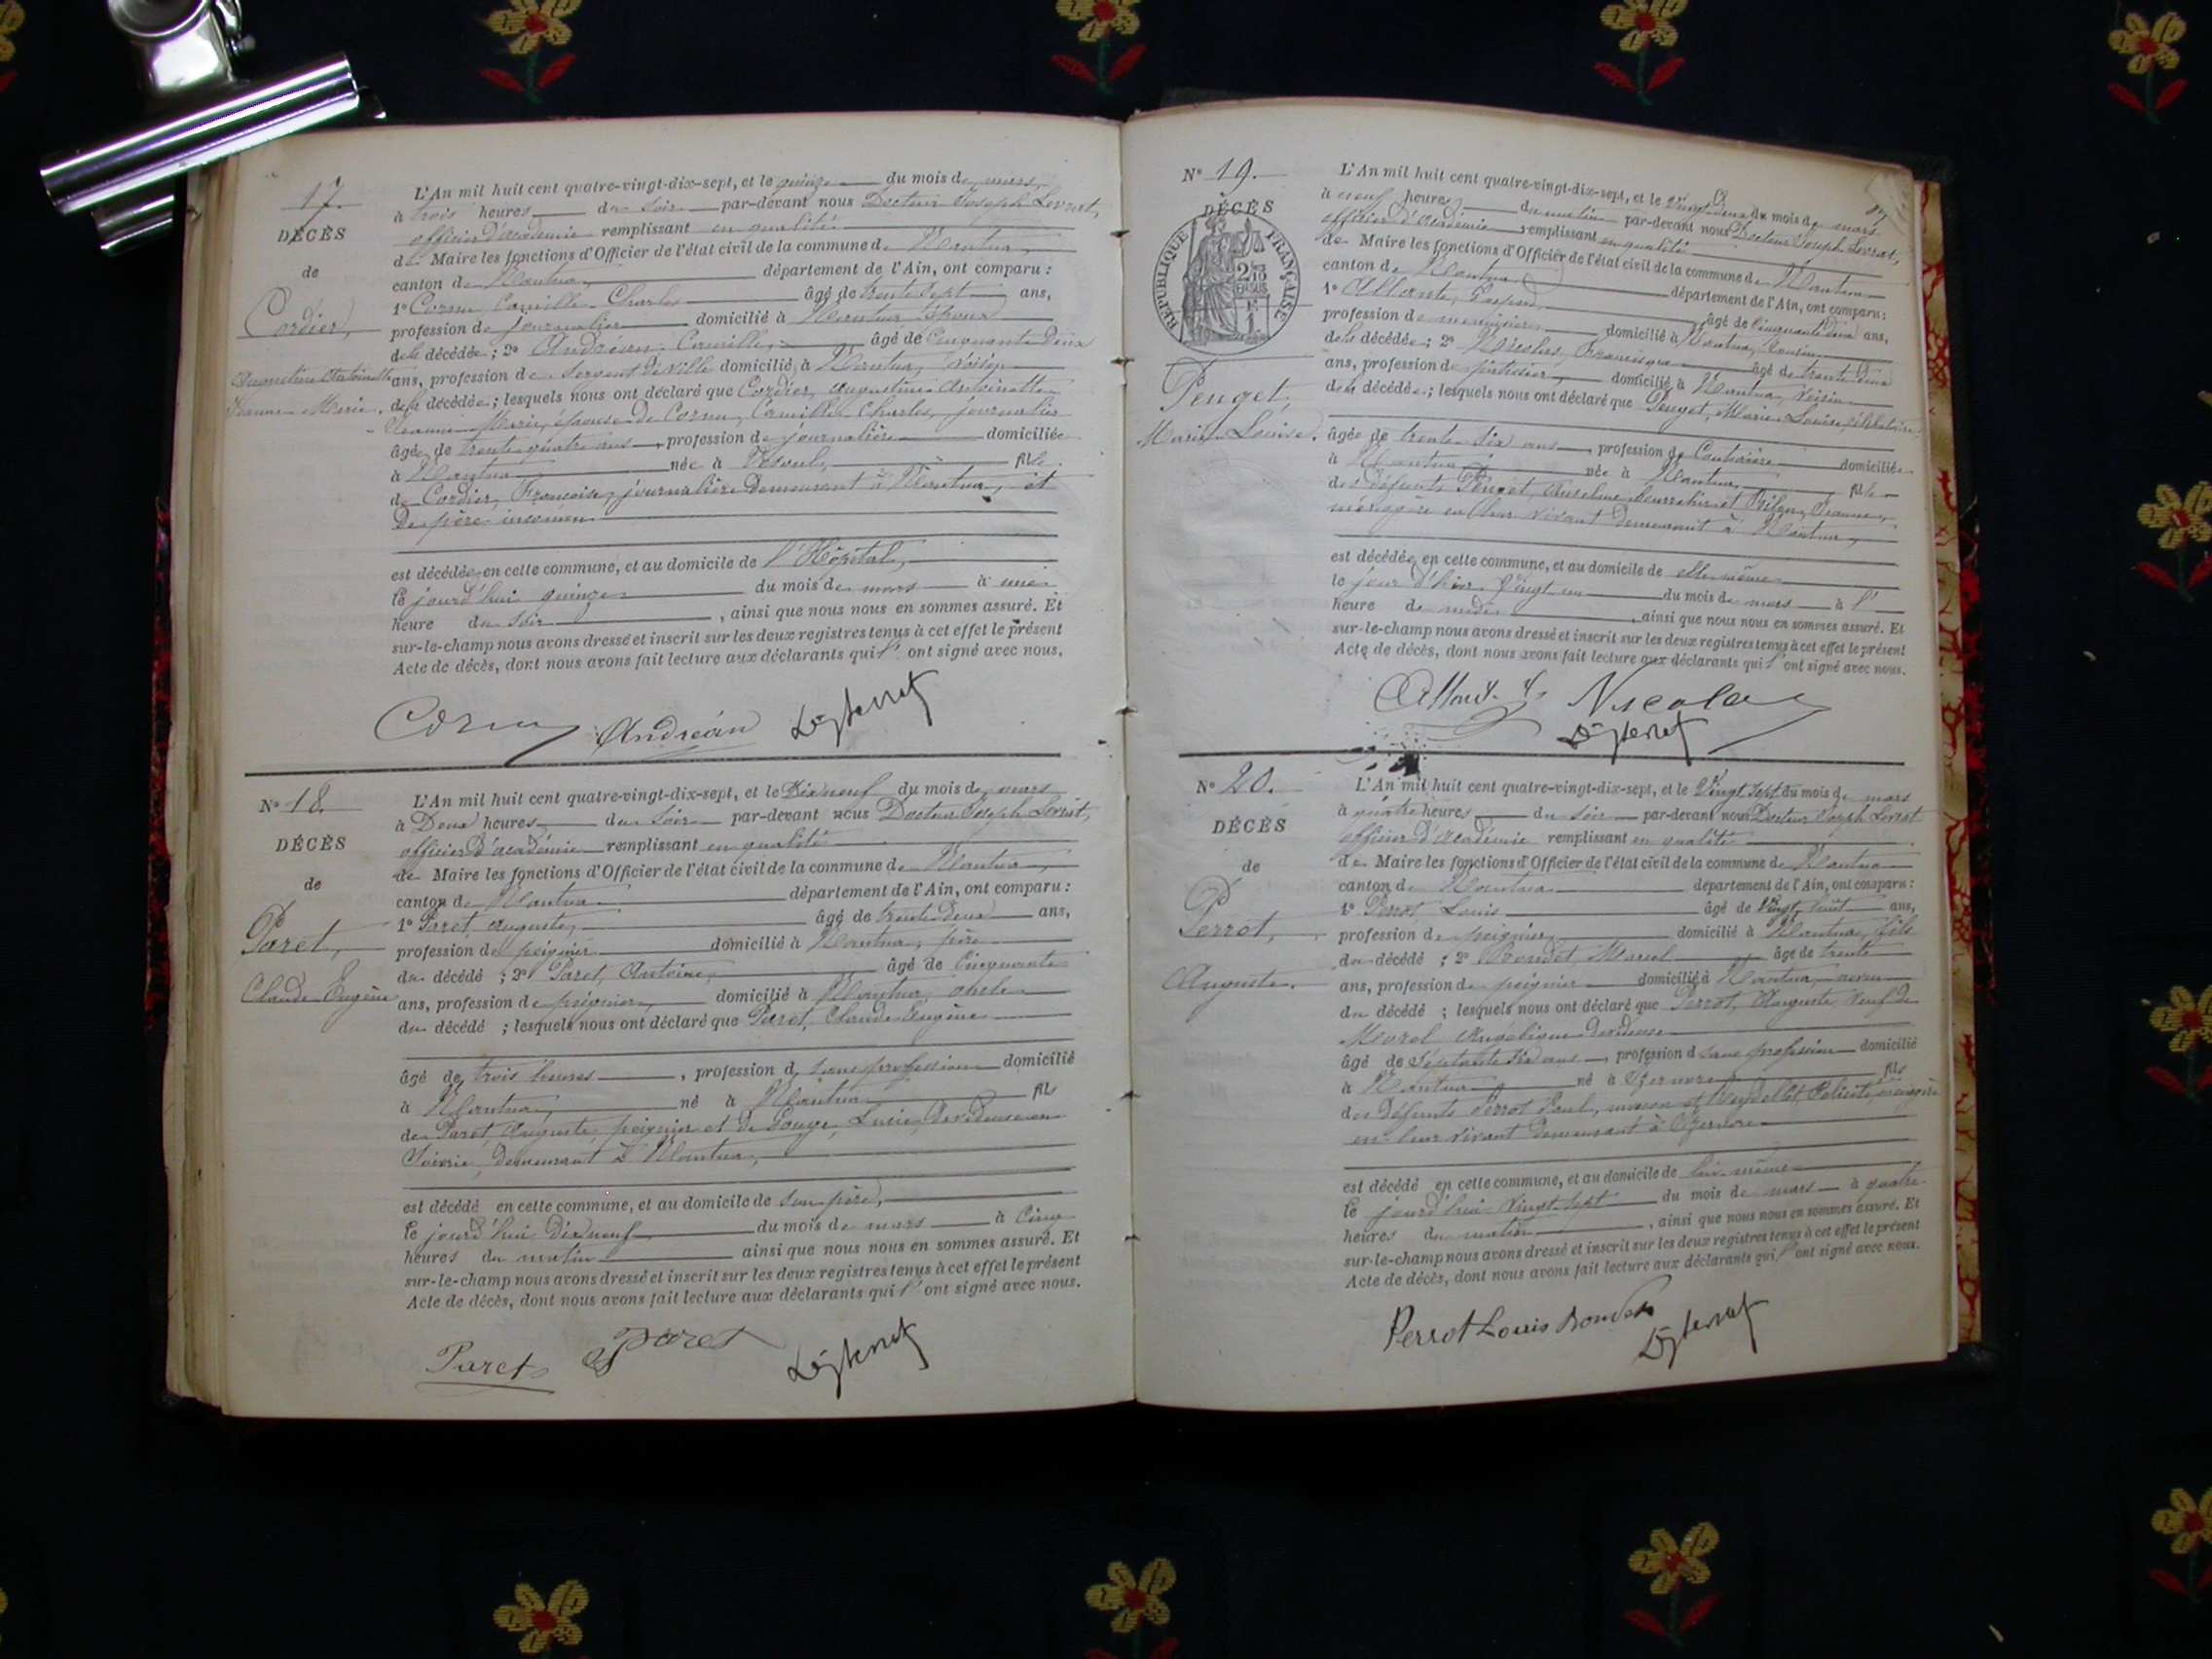 17.
DÉCÈS
de
Cordier,
Augustine Antoinette
Jeanne Marie.
L'An mil huit cent quatre-vingt-dix-sept, et le quinze du mois de mars
à trois heures du soir par-devant nous Docteur Joseph Levrat,
officier d'académie remplissant en qualité
de Maire les fonctions d'Officier de l'état civil de la commune de Nantua
canton de Nantua département de l'Ain, ont comparu :
1° Cornu Camille Charles âgé de trente sept ans,
profession de journalier domicilié à Nantua époux
de la décédée ; 2° Andréan Camille, âgé de Cinquante deux
ans, profession de Sergent de Ville domicilié à Nantua, voisin
de la décédée ; lesquels nous ont déclaré que Cordier, Augustine Antoinette
Jeanne Marie, épouse de Cornu, Camille Charles, journalier
âgée de trente quatre ans profession de journalière domiciliée
à Nantua née à Vesoul, fille
de Cordier, Françoise, journalière demeurant à Nantua, et
De père inconnu
est décédée en cette commune, et au domicile de l'Hôpital,
le jourd'hui quinze du mois de mars à une
heure du soir , ainsi que nous nous en sommes assuré. Et
sur-le-champ nous avons dressé et inscrit sur les deux registres tenus à cet effet le présent
Acte de décès, dont nous avons fait lecture aux déclarants qui l' ont signé avec nous.
Cornu Andréan
N° 18.
DÉCÈS
de
Paret,
Claude Eugène
L'An mil huit cent quatre-vingt-dix-sept, et le Dix neuf du mois de mars
à Deux heures du soir par-devant nous Docteur Joseph Levrat,
officier d'académie remplissant en qualité
de Maire les fonctions d'Officier de l'état civil de la commune de Nantua
canton de Nantua département de l'Ain, ont comparu :
1° Paret Auguste, âgé de trente Deux ans,
profession de peignier domicilié à Nantua, père
du décédé ; 2° Paret, Antoine, âgé de Cinquante
ans, profession de peignier, domicilié à Nantua, oncle
du décédé ; lesquels nous ont déclaré que Paret, Claude Eugène
âgé de trois heures , profession d sans profession domicilié
à Nantua, né à Nantua fils
de Paret Auguste, peignier et de Gouge, Lucie, Dévideuse en
Soierie, demeurant à Nantua,
est décédé en cette commune, et au domicile de son père,
le jourd'hui dix neuf du mois de mars à Cinq
heures du matin ainsi que nous nous en sommes assuré. Et
sur-le-champ nous avons dressé et inscrit sur les deux registres tenus à cet effet le présent
Acte de décès, dont nous avons fait lecture aux déclarants qui l' ont signé avec nous.
Paret Paret
N° 19.
DÉCÈS
RÉPUBLIQUE FRANÇAISE
2/10 EN SUS
Penget,
Marie Louise.
L'An mil huit cent quatre-vingt-dix-sept, et le Vingt deux du mois de mars
à neuf heures du matin par-devant nous Docteur Joseph Levrat,
officier d'académie remplissant en qualité
de Maire les fonctions d'Officier de l'état civil de la commune de Nantua
canton de Nantua département de l'Ain, ont comparu :
1° âgé de Cinquante deux ans,
profession de menuisier domicilié à Nantua, Cousin
de la décédée ; 2° Nicolas, Francisque âgé de trente deux
ans, profession de pâtissier, domicilié à Nantua, Voisin
de la décédée ; lesquels nous ont déclaré que Penget, Marie Louise, célibataire
âgée de trente six ans profession de domiciliée
à Nantua née à Nantua, fille
des défunts Penget, Anselme, et Jeanne,
ménagère en leur vivant demeurant à Nantua,
est décédée en cette commune, et au domicile de elle même
le jour d'hier Vingt un du mois de mars à l'
heure de midi ainsi que nous nous en sommes assuré. Et
sur-le-champ nous avons dressé et inscrit sur les deux registres tenus à cet effet le présent
Acte de décès, dont nous avons fait lecture aux déclarants qui l' ont signé avec nous.
Nicolas
N° 20.
DÉCÈS
de
Perrot,
Auguste.
L'An mil huit cent quatre-vingt-dix-sept, et le Vingt sept du mois de mars
à quatre heures du soir par-devant nous Docteur Joseph Levrat
officier d'académie remplissant en qualité
de Maire les fonctions d'Officier de l'état civil de la commune de Nantua
canton de Nantua département de l'Ain, ont comparu :
1° Perrot Louis âgé de Vingt huit ans,
profession de peignier, domicilié à Nantua, fils
du décédé ; 2° Rondot Marcel âgé de trente
ans, profession de peignier domicilié à Nantua, neveu
du décédé ; lesquels nous ont déclaré que Perrot, Auguste Veuf de
Morel Angélique devideuse
âgé de Septante six ans profession d sans profession domicilié
à Nantua né à Izernore fils
des défunts Perrot Paul, maçon et Félicité, ménagère
en leur vivant demeurant à Izernore
est décédé en cette commune, et au domicile de lui même
le jourd'hui Vingt sept du mois de mars à quatre
heures du matin , ainsi que nous nous en sommes assuré. Et
sur-le-champ nous avons dressé et inscrit sur les deux registres tenus à cet effet le présent
Acte de décès, dont nous avons fait lecture aux déclarants qui l' ont signé avec nous.
Perrot Louis